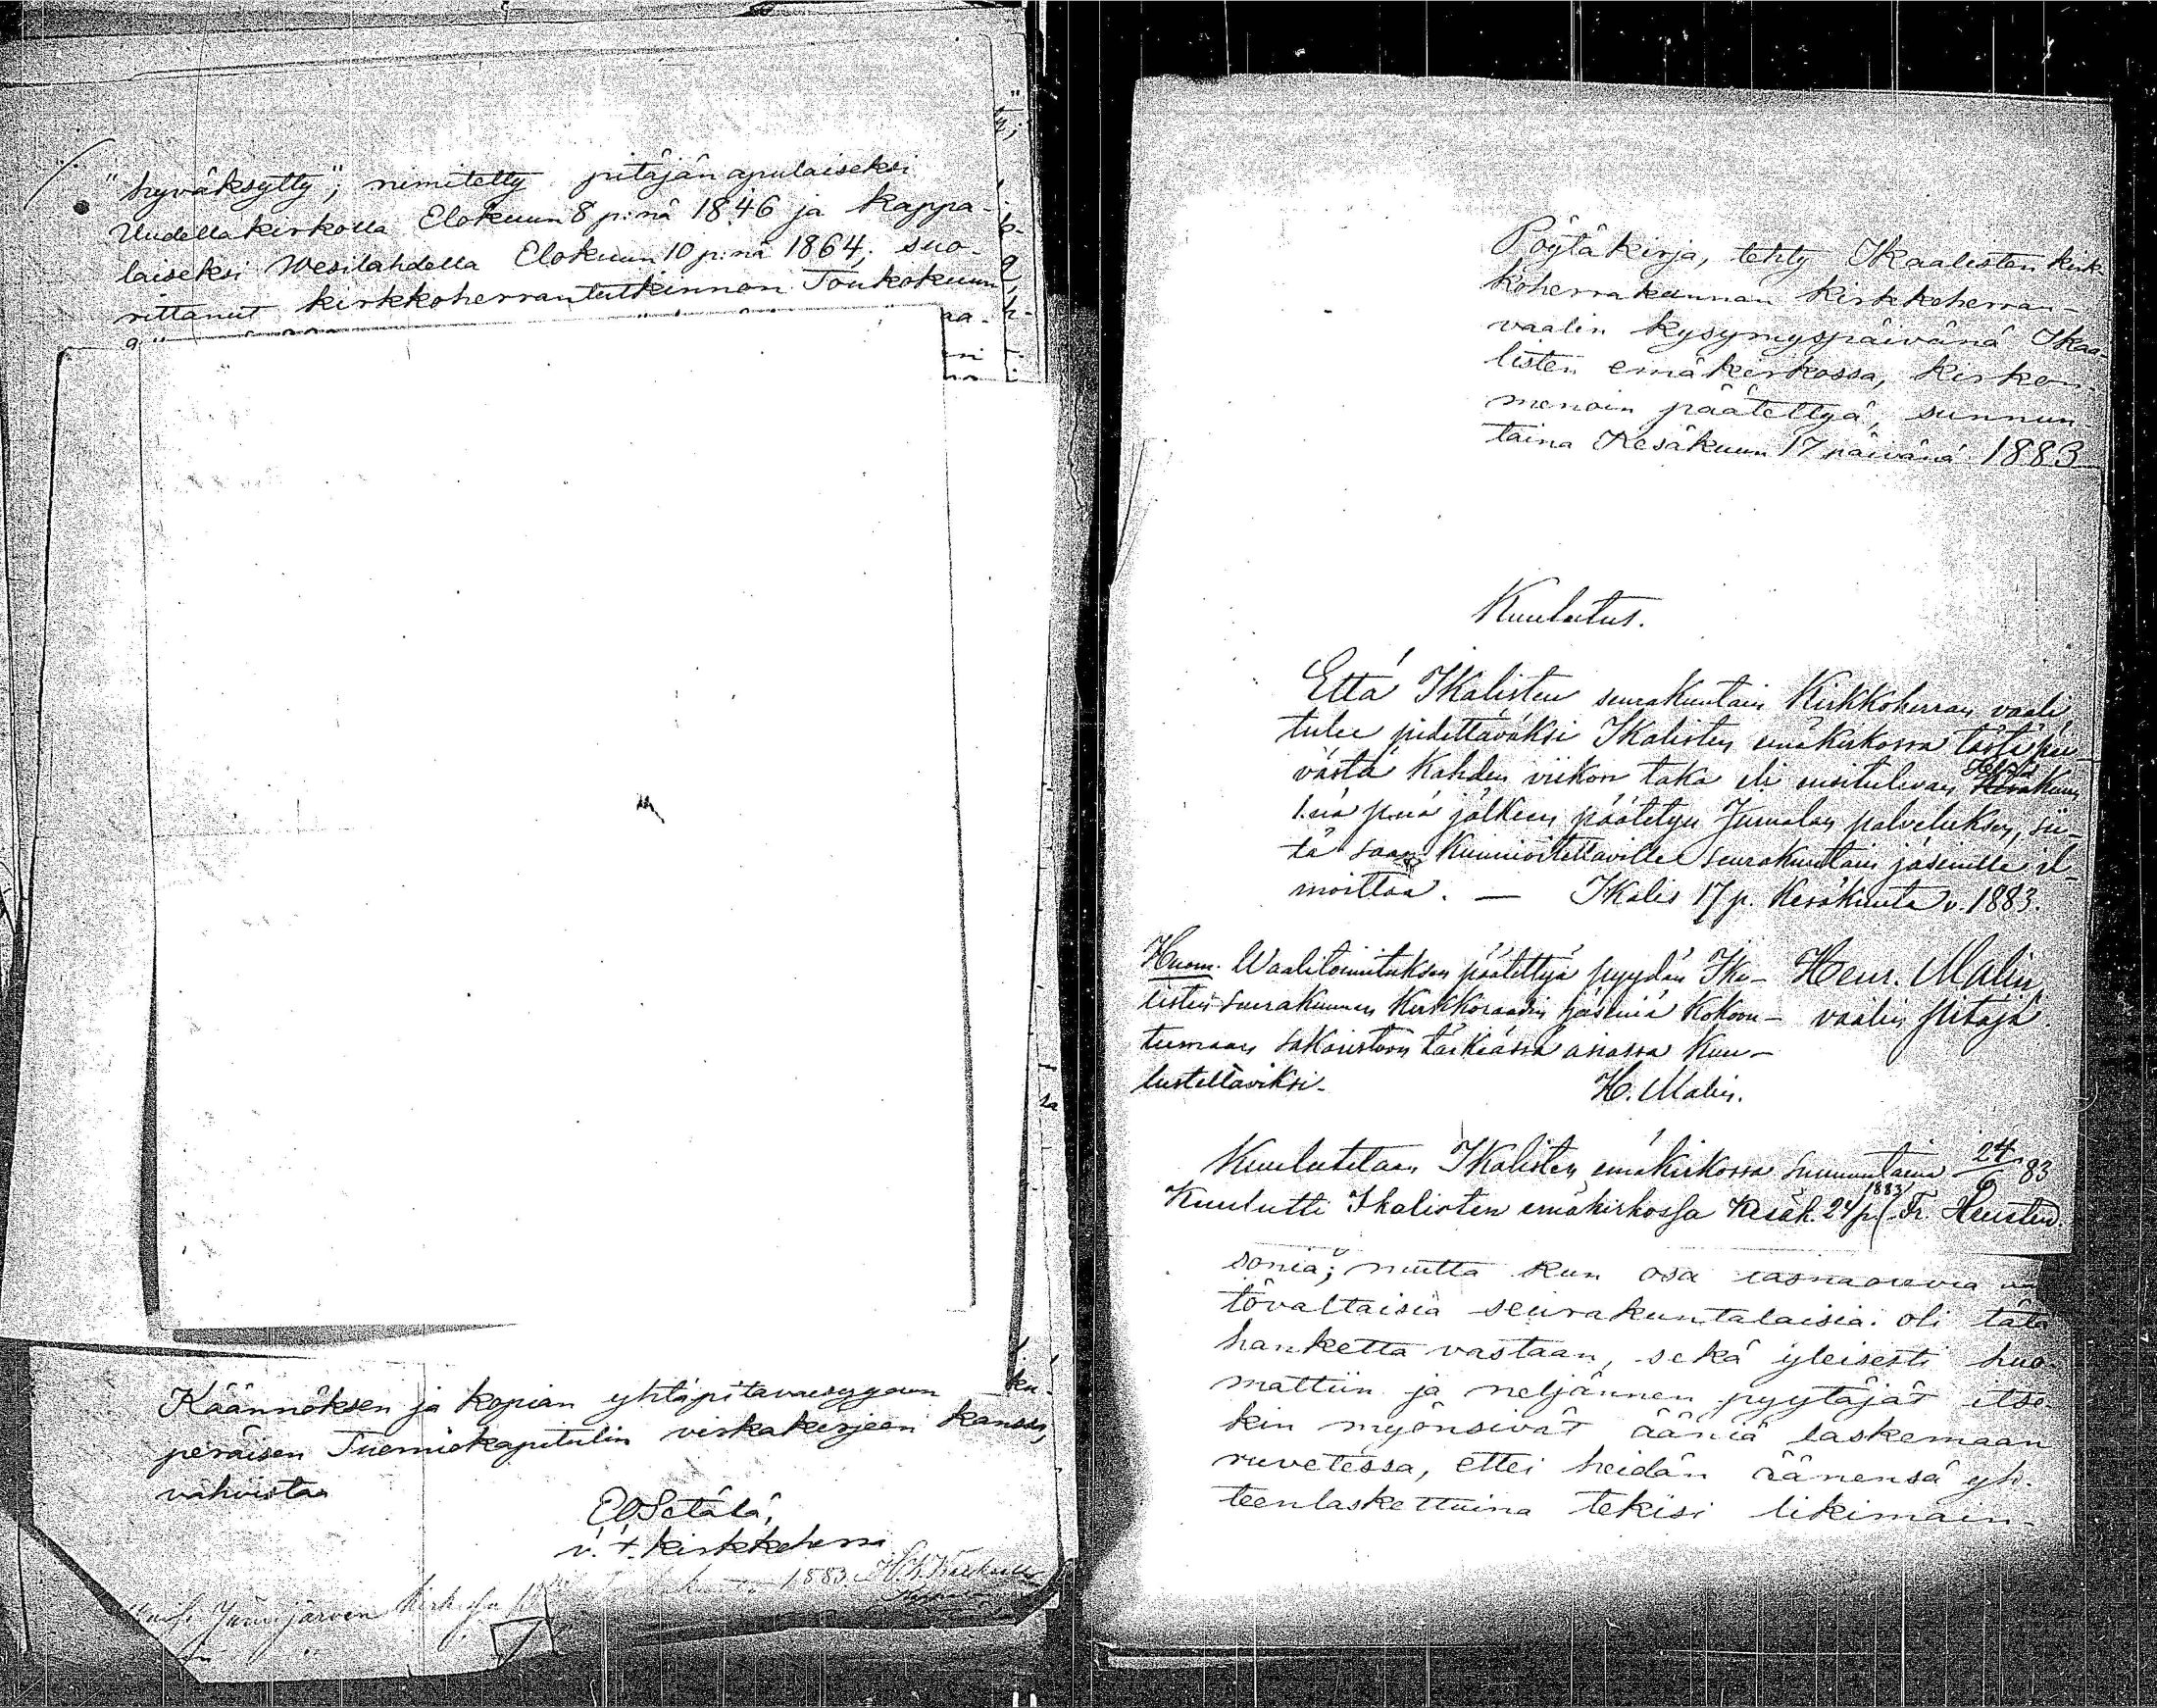 "hyväksytty"; nimitetty pitäjän apulaiseksi
Uudellakirkolla Elokuun 8 p:nä 1846 ja kappa-
laiseksi Wesilahdella Elokuun 10 p:nä 1864; suo-
rittanut kirkkoherrantutkinnon Toukokuun
Käännöksen ja kopian yhtäpitäväisyyden
peräisen Tuomiokapitulin virkakirjeen kanssa,
vahvistaa
E Setälä,
v. t. kirkkoherra
Jämijärven 1883.
Pöytäkirja, tehty Ikaalisten kirk-
koherrakunnan kirkkoherran-
vaalin kysymyspäivänä Ikaa-
listen emäkirkossa, kirkon-
menoin päätettyä, sunnun-
taina Kesäkuun 17 päivänä 1883
Kuulutus.
Että Ikalisten seurakuntain Kirkkoherran vaali
tulee pidettäväksi Ikalisten emäkirkossa tästä päi-
västä kahden viikon taka eli ensitulevan
1.nä p:nä jälkeen päätetyn Jumalan palveluksen, sii-
tä saan kunnioitettaville seurakuntain jäsenille il-
moittaa. — Ikalis 17 p. Kesäkuuta v. 1883.
Heur. Malin,
vaalin pitäjä.
Huom. Waalitoimituksen päätettyä pyydän Ika-
listen seurakunnan Kirkkoraadin jäseniä kokoon-
tumaan sakaristoon tärkiässä asiassa kuu-
lusteltaviksi.
H. Malin.
Kuulutetaan Ikalisten emäkirkossa sunnuntaina 24/6 83
Kuulutti Ikalisten emäkirkossa Kesäk. 24 p. 1883 Fr.
soniä; mutta kun osa läsnäolevia
tövaltaisia seurakuntalaisia oli tätä
hanketta vastaan, sekä yleisesti huo-
mattiin ja neljännen pyytäjät itse-
kin myönsivät ääniä laskemaan
ruvetessa, ettei heidän äänensä yh-
teenlaskettuina tekisi likimain-